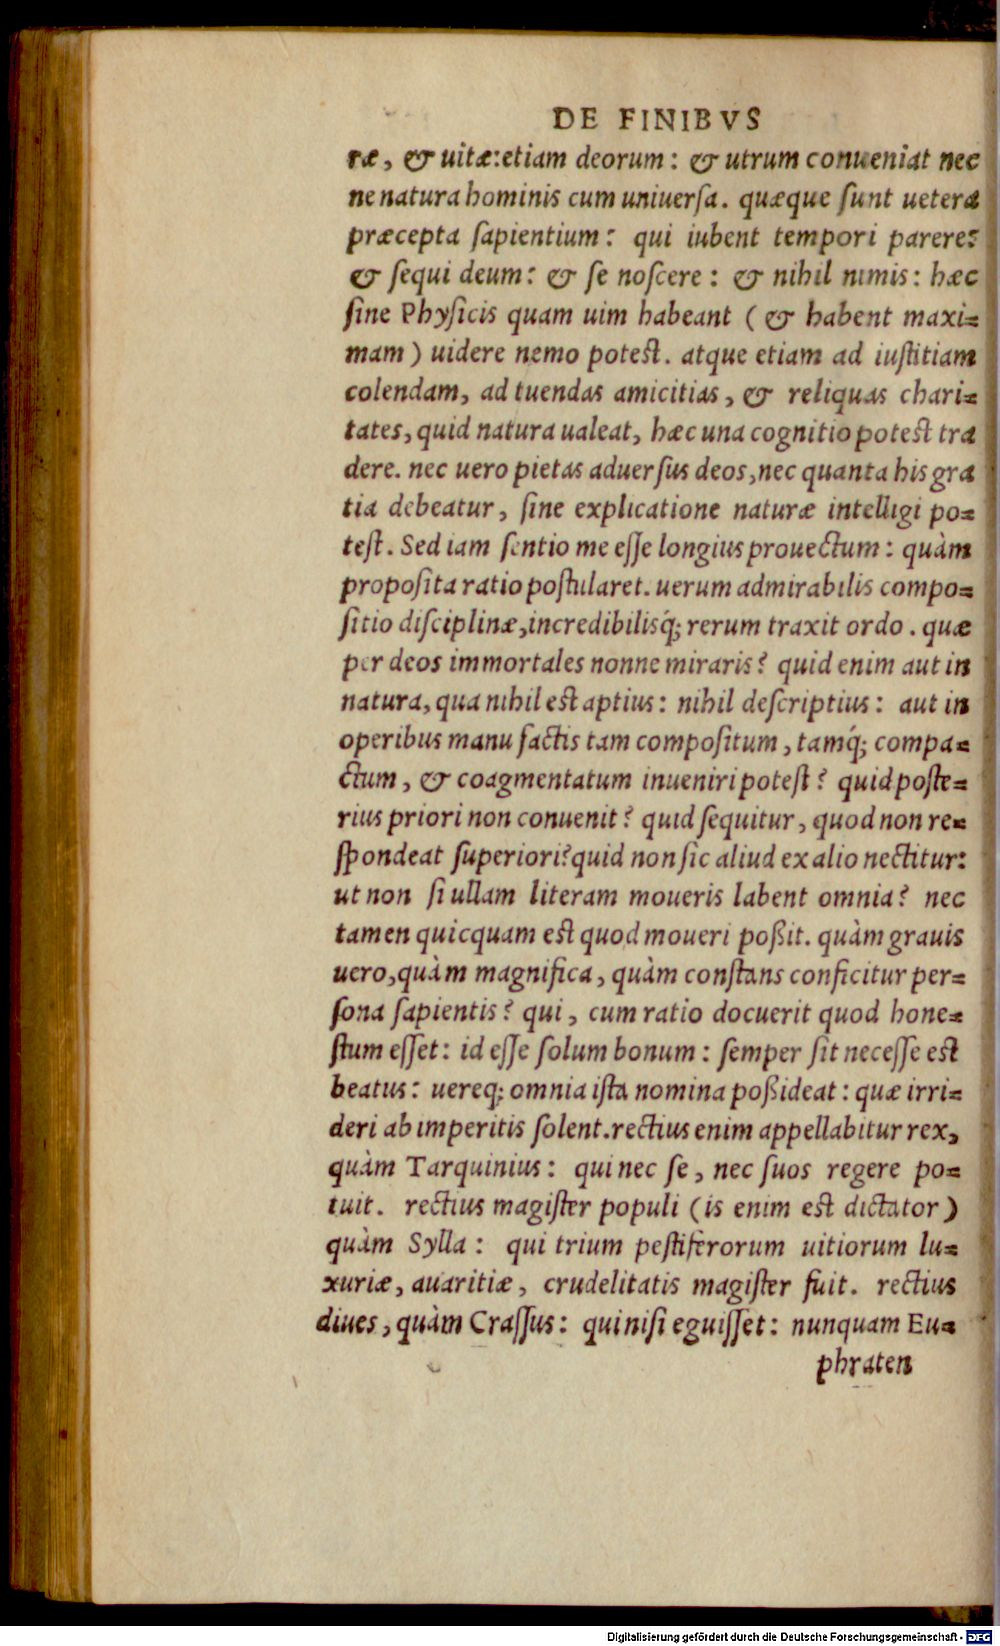 DE FINIBVS
ræ, & uitæ: etiam deorum: & utrum conueniat nec
ne natura hominis cum uniuersa. quæque ſunt uetera
præcepta ſapientium: qui iubent tempori parere:
& ſequi deum: & ſe noſcere: & nihil nimis: hæc
ſine Phyſicis quam uim habeant (& habent maxi=
mam) uidere nemo poteſt. atque etiam ad iuſtitiam
colendam, ad tuendas amicitias, & reliquas chari=
tates, quid natura ualeat, hæc una cognitio poteſt tra
dere. nec uero pietas aduerſus deos, nec quanta his gra
tia debeatur, ſine explicatione naturæ intelligi po=
teſt. Sed iam ſentio me eſſe longius prouectum: quàm
propoſita ratio poſtularet. uerum admirabilis compo=
ſitio diſciplinæ, incredibilisq́; rerum traxit ordo. quæ
per deos immortales nonne miraris? quid enim aut in
natura, qua nihil eſt aptius: nihil deſcriptius: aut in
operibus manu factis tam compoſitum, tamq́; compa=
ctum, & coagmentatum inueniri poteſt? quid poſte=
rius priori non conuenit? quid ſequitur, quod non re=
ſpondeat ſuperiori? quid non ſic aliud ex alio nectitur:
ut non ſi ullam literam moueris labent omnia? nec
tamen quicquam eſt quod moueri poßit. quàm grauis
uero, quàm magnifica, quàm conſtans conficitur per=
ſona ſapientis? qui, cum ratio docuerit quod hone=
ſtum eſſet: id eſſe ſolum bonum: ſemper ſit neceſſe eſt
beatus: uereq; omnia iſta nomina poßideat: quæ irri=
deri ab imperitis ſolent. rectius enim appellabitur rex,
quàm Tarquinius: qui nec ſe, nec ſuos regere po=
tuit. rectius magiſter populi (is enim eſt dictator)
quàm Sylla: qui trium peſtiferorum uitiorum lu=
xuriæ, auaritiæ, crudelitatis magiſter fuit. rectius
diues, quàm Craſſus: qui niſi eguiſſet: nunquam Eu=
phraten
Digitalisierung gefördert durch die Deutsche Forschungsgemeinschaft - DFG